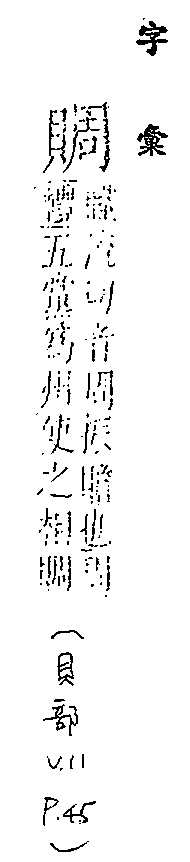 字彙
賙
職流切音周振贍也周
禮五黨爲州使之相賙
(貝部
V.11
P.45)